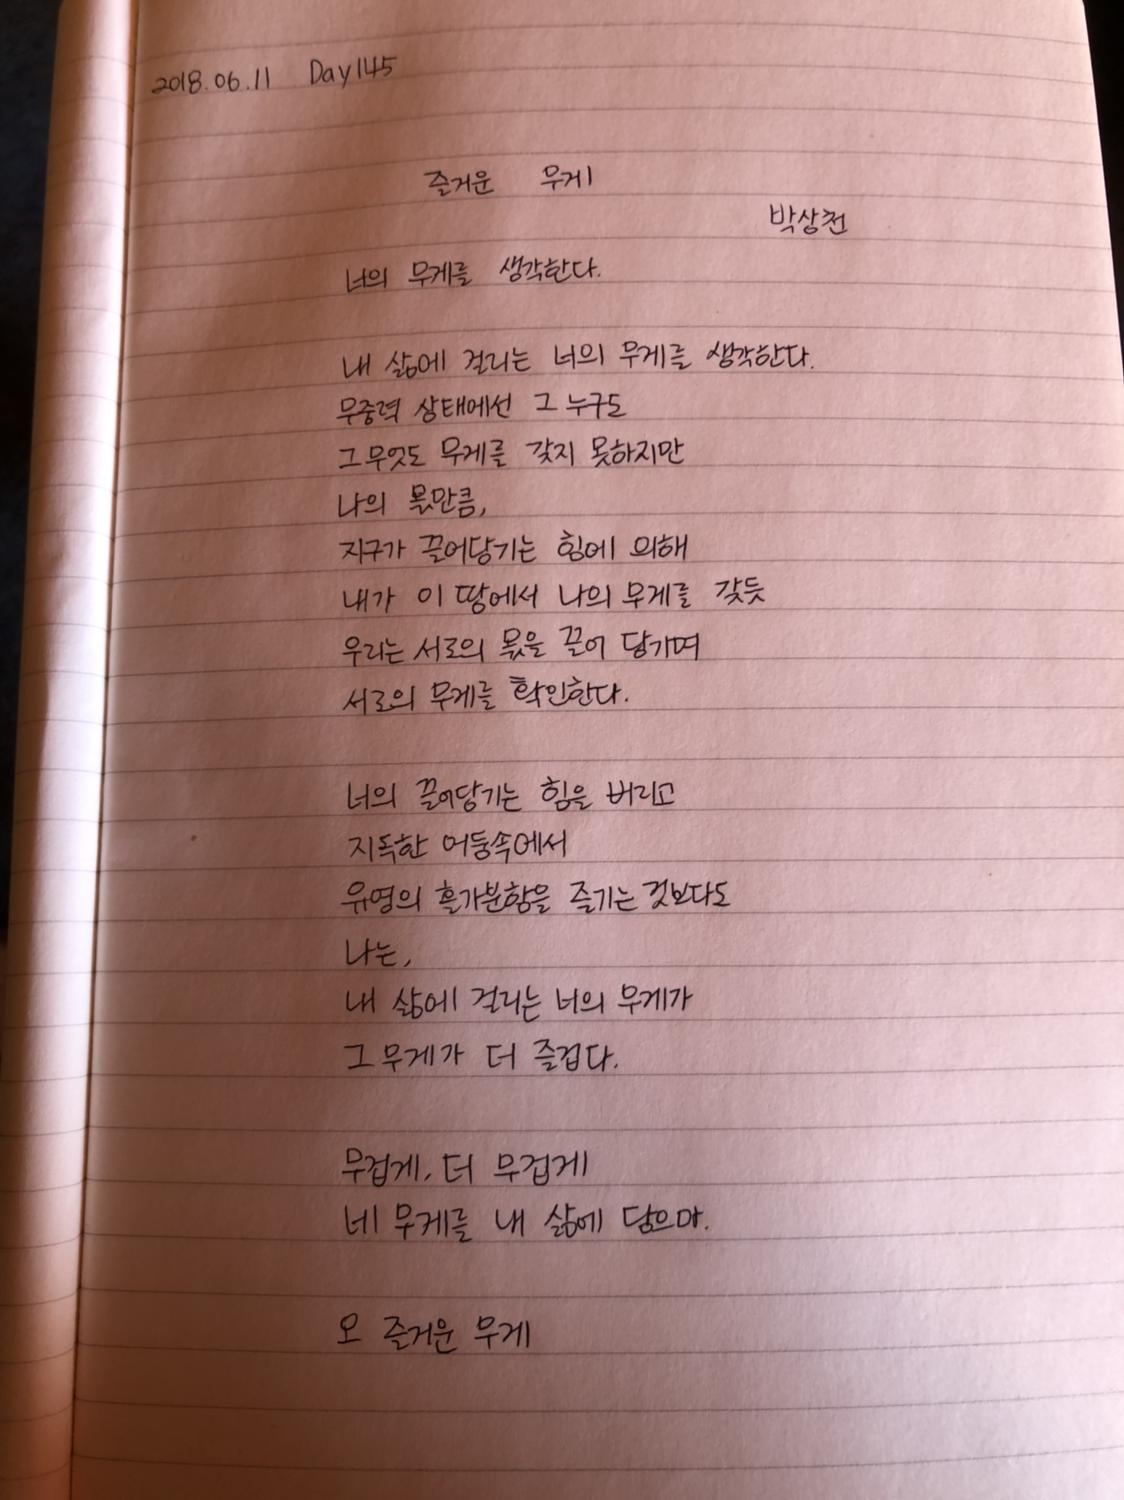 2018.06.11 Day145
즐거운 무게
박상천
너의 무게를 생각한다.
내 삶에 걸리는 너의 무게를 생각한다.
무중력 상태에선 그 누구도
그 무엇도 무게를 갖지 못하지만
나의 몫만큼,
지구가 끌어당기는 힘에 의해
내가 이 땅에서 나의 무게를 갖듯
우리는 서로의 몫을 끌어 당기며
서로의 무게를 확인한다.
너의 끌어당기는 힘을 버리고
지독한 어둠속에서
유영의 홀가분함을 즐기는 것보다도
나는,
내 삶에 걸리는 너의 무게가
그 무게가 더 즐겁다.
무겁게, 더 무겁게
네 무게를 내 삶에 담으마.
오 즐거운 무게